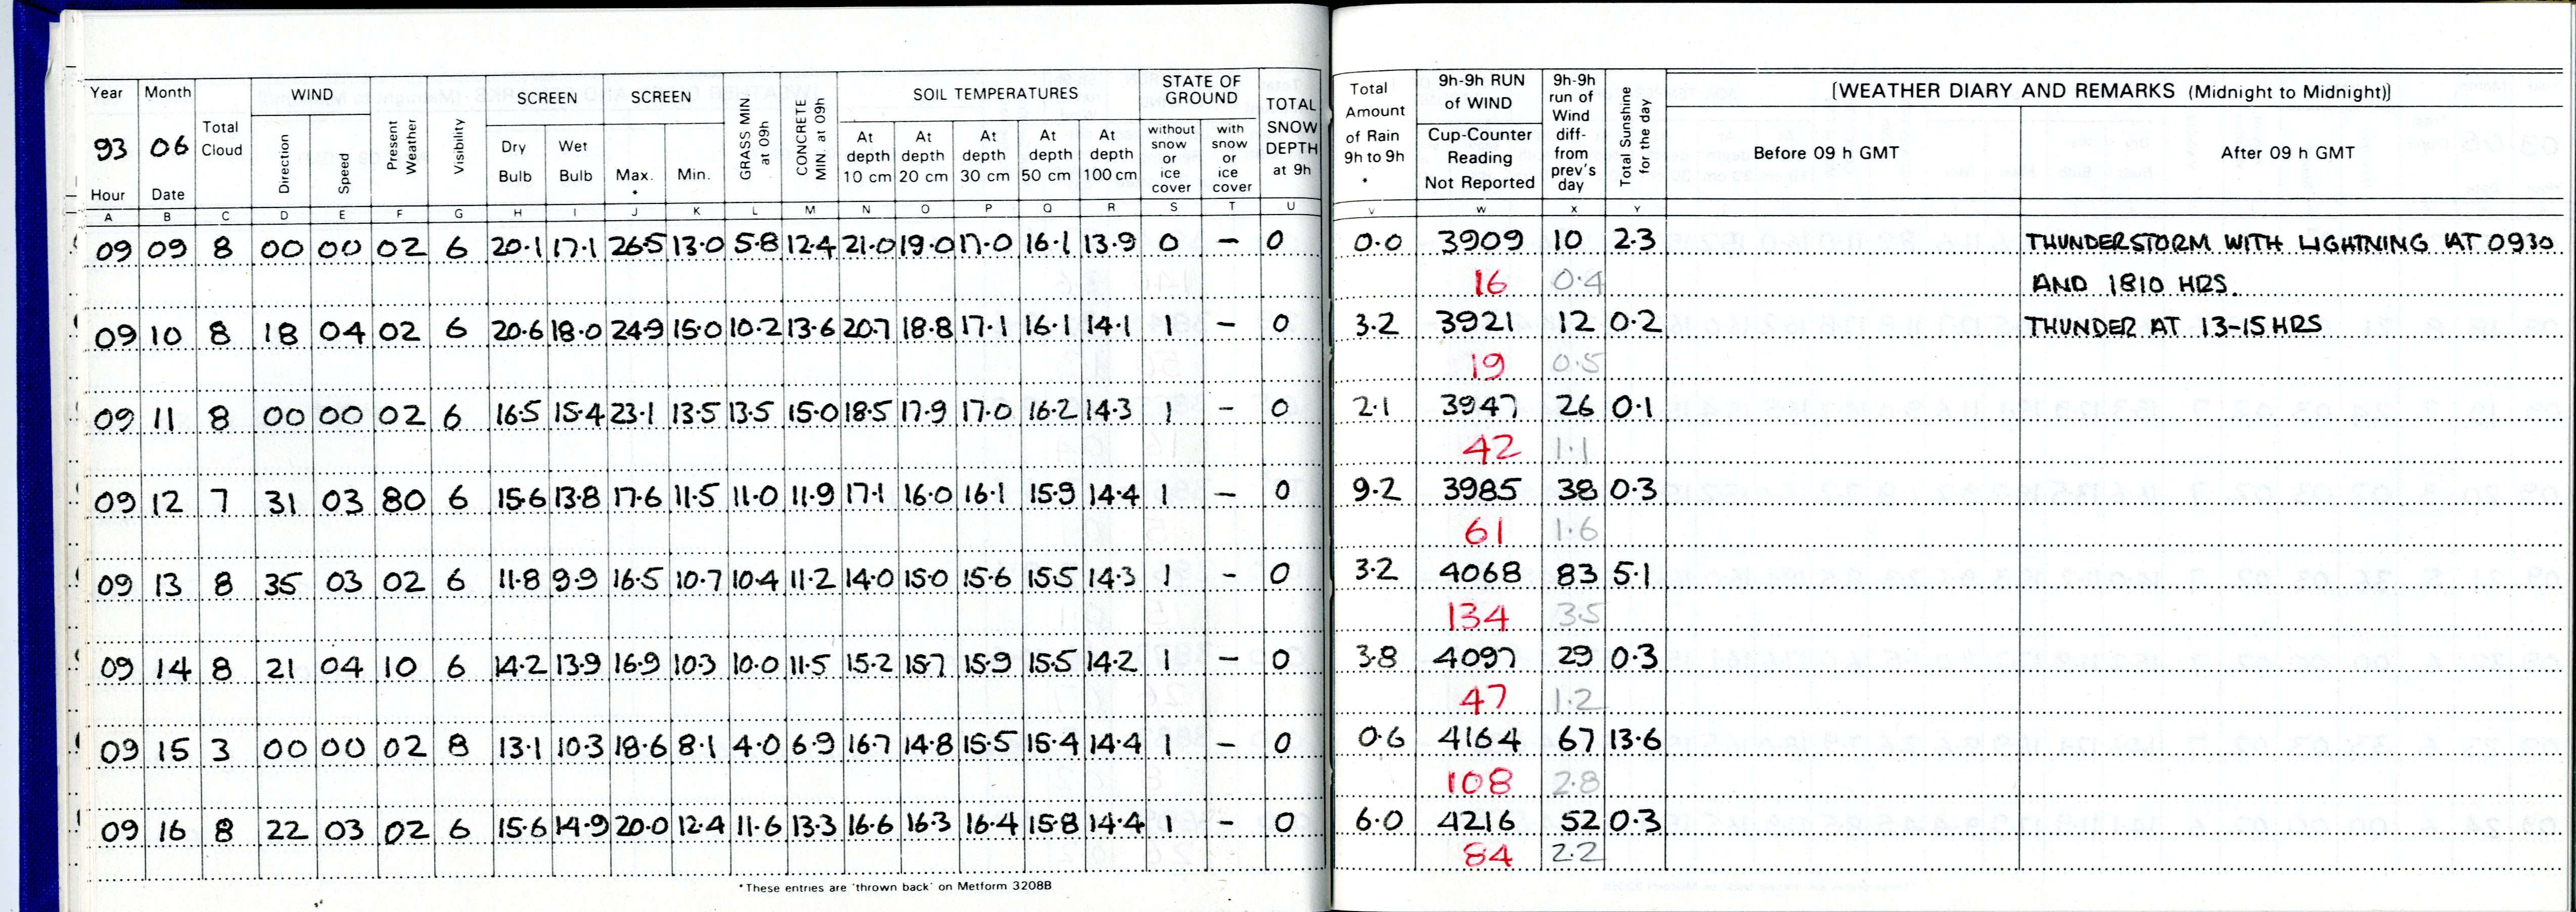 Year Month Total Cloud WIND Present Weather Visibility SCREEN SCREEN GRASS MIN at 09h CONCRETE MIN at 09h SOIL TEMPERATURES STATE OF GROUND TOTAL SNOW DEPTH at 9h Total Amount of Rain 9h to 9h * 9h-9h RUN of WIND 9h-9h run of Wind diff- from prev's day Total Sunshine for the day (WEATHER DIARY AND REMARKS (Midnight to Midnight))
93 06 Direction Speed Dry Bulb Wet Bulb Max. * Min. At depth 10 cm At depth 20 cm At depth 30 cm At depth 50 cm At depth 100 cm without snow or ice cover with snow or ice cover Cup-Counter Reading Not Reported Before 09 h GMT After 09 h GMT
Hour Date
A B C D E F G H I J K L M N O P Q R S T U V W X Y
09 09 8 00 00 02 6 20.1 17.1 26.5 13.0 5.8 12.4 21.0 19.0 17.0 16.1 13.9 0 – 0 0.0 3909 10 2.3 THUNDERSTORM WITH LIGHTNING AT 0930
16 0.4 AND 1810 HRS.
09 10 8 18 04 02 6 20.6 18.0 24.9 15.0 10.2 13.6 20.7 18.8 17.1 16.1 14.1 1 – 0 3.2 3921 12 0.2 THUNDER AT 13-15 HRS
19 0.5
09 11 8 00 00 02 6 16.5 15.4 23.1 13.5 13.5 15.0 18.5 17.9 17.0 16.2 14.3 1 – 0 2.1 3947 26 0.1
42 1.1
09 12 7 31 03 80 6 15.6 13.8 17.6 11.5 11.0 11.9 17.1 16.0 16.1 15.9 14.4 1 – 0 9.2 3985 38 0.3
61 1.6
09 13 8 35 03 02 6 11.8 9.9 16.5 10.7 10.4 11.2 14.0 15.0 15.6 15.5 14.3 1 – 0 3.2 4068 83 5.1
134 3.5
09 14 8 21 04 10 6 14.2 13.9 16.9 10.3 10.0 11.5 15.2 15.7 15.9 15.5 14.2 1 – 0 3.8 4097 29 0.3
47 1.2
09 15 3 00 00 02 8 13.1 10.3 18.6 8.1 4.0 6.9 16.7 14.8 15.5 15.4 14.4 1 – 0 0.6 4164 67 13.6
108 2.8
09 16 8 22 03 02 6 15.6 14.9 20.0 12.4 11.6 13.3 16.6 16.3 16.4 15.8 14.4 1 – 0 6.0 4216 52 0.3
84 2.2
*These entries are 'thrown back' on Metform 3208B